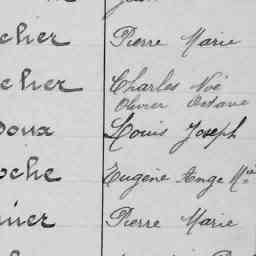 cher Pierre Marie
cher Charles Noé
Olivier Octave
Doux Louis Joseph
oche Eugène Ange Mie
nier Pierre Marie